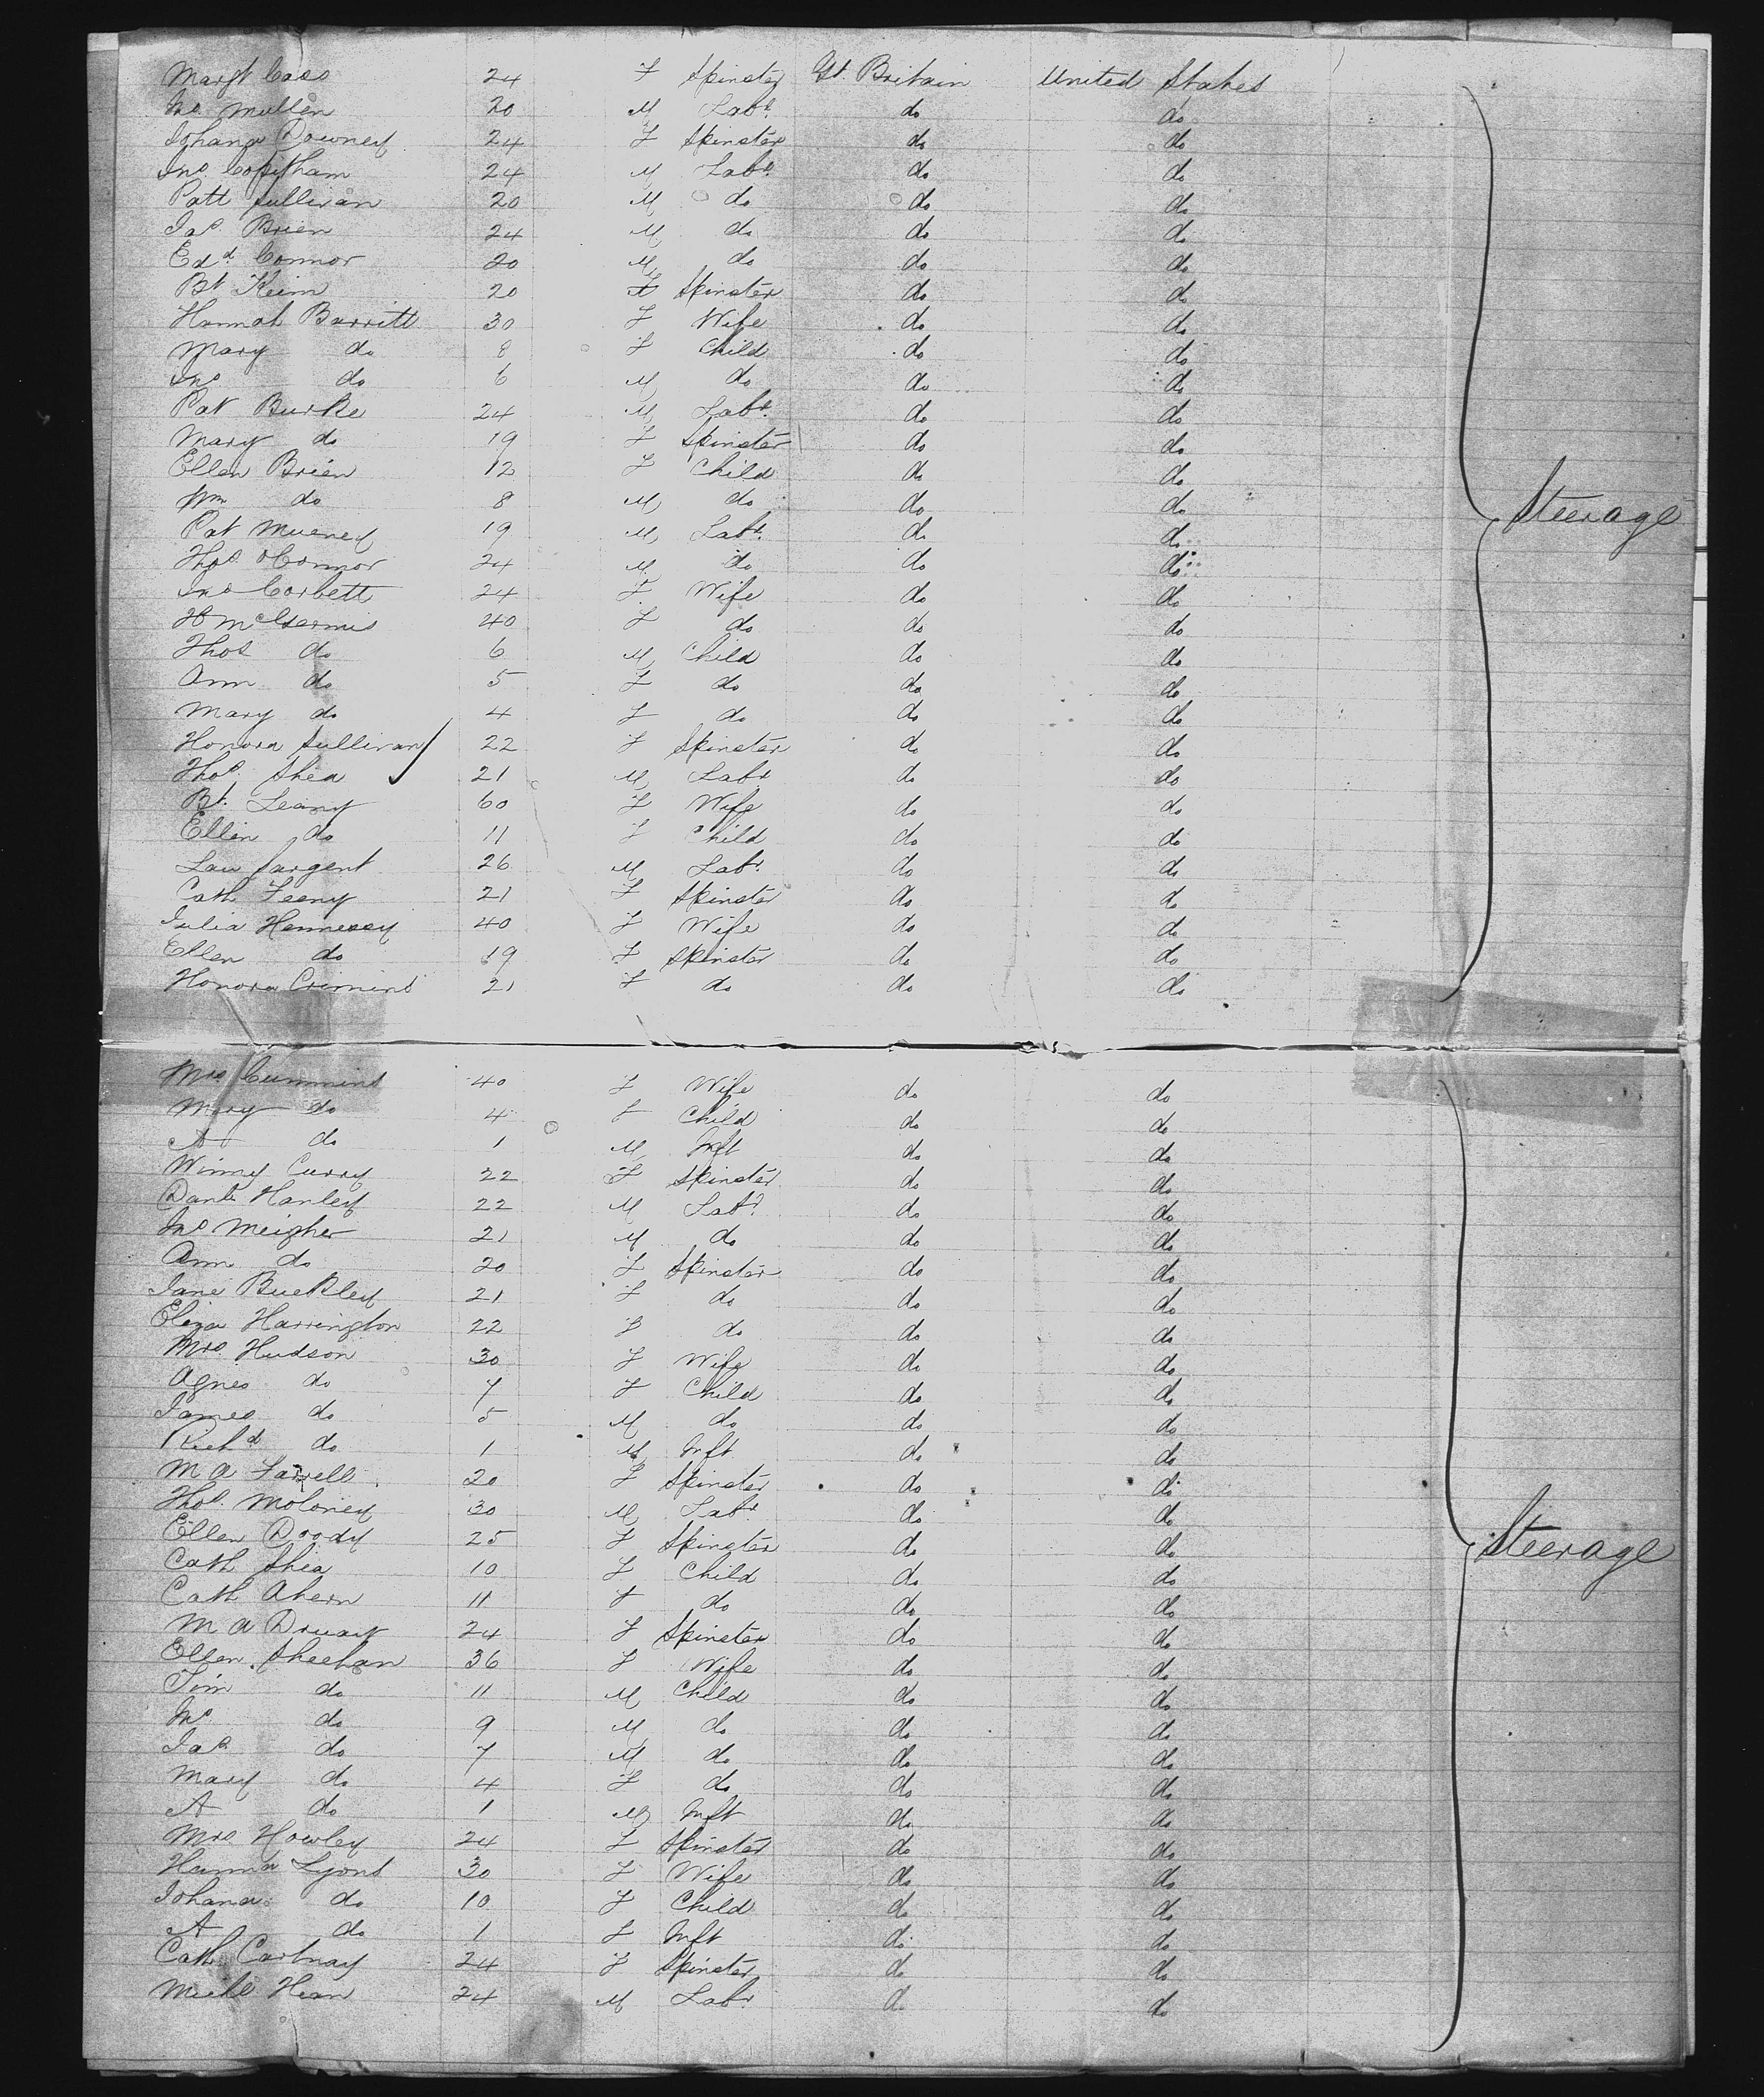 Margt Cass 24 F Spinster Gt. Britain United States
Jno Mullen 20 M Labr. do do
Johana Downey 24 F Spinster do do
Jno. Copitham 24 M Labr. do do
Patt Sullivan 20 M do do do
Jas. Brien 24 M do do do
Edd. Connor 20 M do do do
Bt Keim 20 F Spinster do do
Hannah Barritt 30 F Wife do do
Mary do 8 F Child do do
Jno do 6 M do do do
Pat Burke 24 M Labr. do do
Mary do 19 F Spinster do do
Ellen Brien 12 F Child do do
Wm do 8 M do do do
Steerage
Pat 19 M Labr. do do
Thos. OConnor 24 M do do do
Jno Corbett 24 F Wife do do
H 40 F do do do
Thos do 6 M Child do do
Ann do 5 F do do do
Mary do 4 F do do do
Honora Sullivan 22 F Spinster do do
Thos. Shea 21 M Labr do do
Bt. Leany 60 F Wife do do
Ellen do 11 F Child do do
Lau Sargent 26 M Labr. do do
Cath Feeny 21 F Spinster do do
Julia Hennessy 40 F Wife do do
Ellen do 19 F Spinster do do
Honora Crimins 21 F do do do
Mrs Cummins 40 F Wife do do
Mary do 4 F Child do do
A do 1 M Inft do do
Winny Curry 22 F Spinster do do
Danl. Hanley 22 M Labr. do do
Jno Meigher 21 M do do do
Ann do 20 F Spinster do do
Jane Buckley 21 F do do do
Eliza Harrington 22 F do do do
Mrs. Hudson 30 F Wife do do
Agnes do 7 F Child do do
James do 5 M do do do
Richd do 1 M Inft do do
M A Farrell 20 F Spinster do do
Thos. Moloney 30 M Labr. do do
Ellen Doody 25 F Spinster do do
Steerage
Cath Shea 10 F Child do do
Cath Ahern 11 F do do do
M A 24 F Spinster do do
Ellen Sheehan 36 F Wife do do
Tim do 11 M Child do do
Jno. do 9 M do do do
Jas. do 7 M do do do
Mary do 4 F do do do
A do 1 M Inft do do
Mrs Howley 24 F Spinster do do
Hanna Lyons 30 F Wife do do
Johana do 10 F Child do do
A do 1 F Inft do do
Cath Cartnay 24 F Spinster do do
Michl 24 M Labr do do